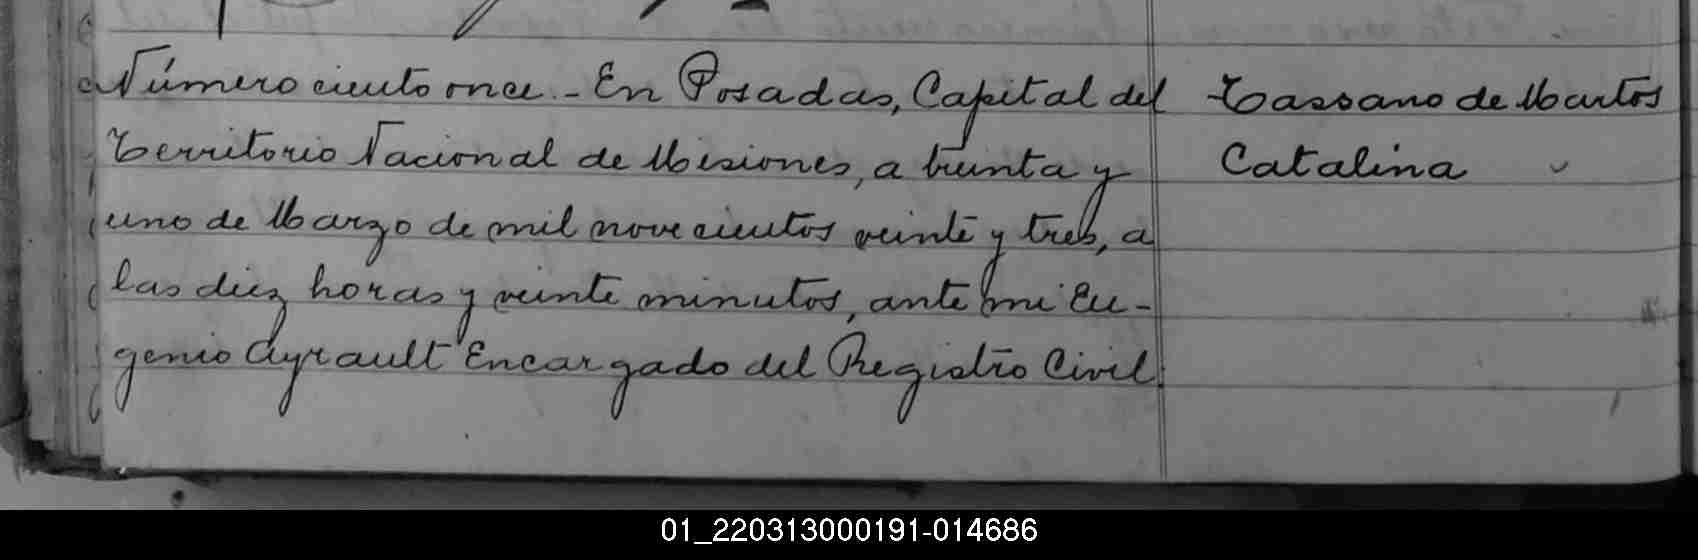 Número ciento once.- En Posadas, Capital del
Territorio Nacional de Misiones, a treinta y
uno de Marzo de mil novecientos veinte y tres, a
las diez horas y veinte minutos, ante mi Eu-
genio Ayrault Encargado del Registro Civil
Tassano de Martos
Catalina
01_220313000191-014686